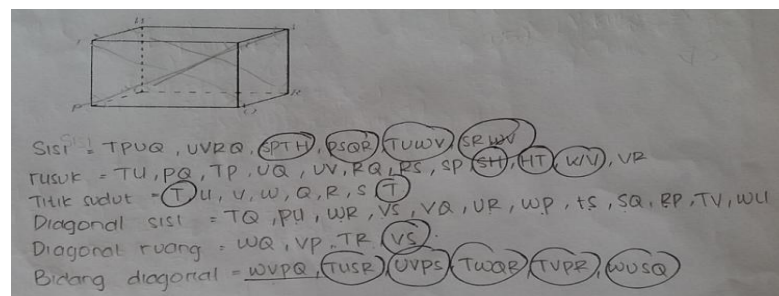 Sisi = TPUQ, UVRQ, SPTH, PSQR, TUWV, SRWV
rusuk = TU, PQ, TP, UQ, UV, RQ, RS, SP, SH, HT, WV, VR
Titik sudut = T, U, V, W, Q, R, S, T
Diagonal sisi = TQ, PU, WR, VS, VQ, UR, WP, tS, SQ, RP, TV, WU
Diagonal ruang = WQ, VP, TR, VS.
Bidang diagonal = WVPQ, TUSR, UVPS, TWQR, TVPR, WUSQ